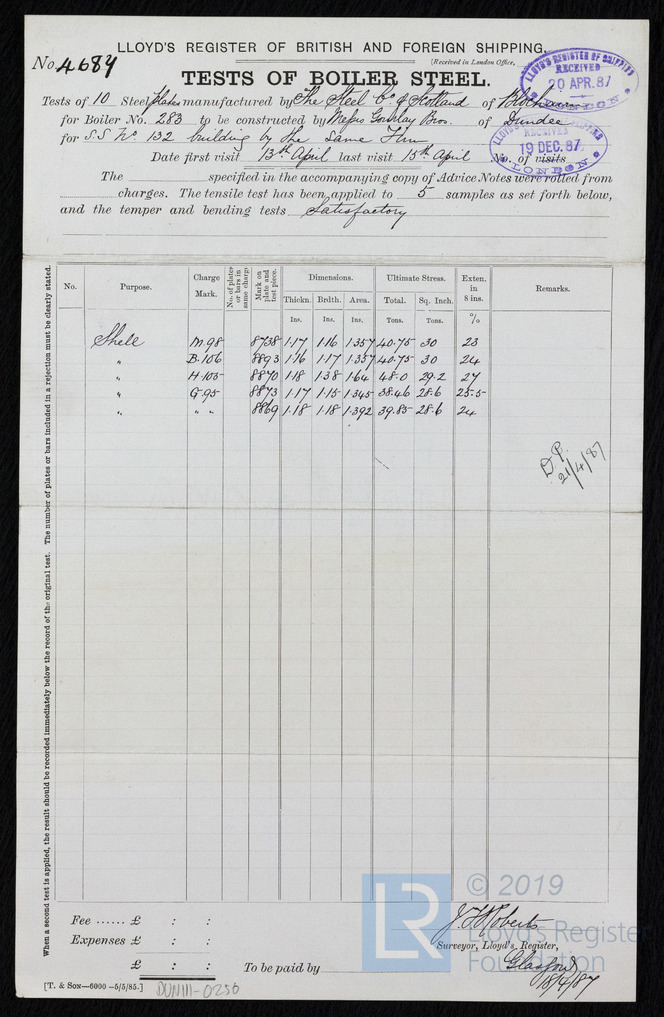 LLOYD'S REGISTER OF BRITISH AND FOREIGN SHIPPING.
No. 4684
[Received in London Office,
LLOYD'S REGISTER OF SHIPPING RECEIVED 20 APR.87 LONDON
TESTS OF BOILER STEEL.
Tests of 10 Steel plates manufactured by The Steel Co. of Scotland of Blochairn
for Boiler No. 283 to be constructed by Messrs Gourlay Bros. of Dundee
RECEIVED 19 DEC.87 LONDON
for S.S No 132 building by the same Firm
Date first visit 13th April last visit 15th April No. of visits
The specified in the accompanying copy of Advice Notes were rolled from
charges. The tensile test has been applied to 5 samples as set forth below,
and the temper and bending tests Satisfactory
When a second test is applied, the result should be recorded immediately below the record of the original test. The number of plates or bars included in a rejection must be clearly stated.
No. Purpose. Charge Mark. No. of plates or bars in same charge Mark on plate and test piece. Dimensions. Ultimate Stress. Exten. in 8 ins. Remarks.
Thickn. Brdth. Area. Total. Sq. Inch.
Ins. Ins. Ins. Tons. Tons. %
Shell M.98 8738 1.17 1.16 1.357 40.75 30 23
" B.106 8893 1.16 1.17 1.357 40.75 30 24
" H.105 8870 1.18 1.38 1.64 48.0 29.2 27
" G.95 8873 1.17 1.15 1.345 38.46 28.6 25.5
" " " 8869 1.18 1.18 1.392 39.85 28.6 24
D.P.
21/4/87
LR © 2019
Lloyd's Register
Foundation
Fee ...... £ : :
J. F. Roberts
Expenses £ : :
Surveyor, Lloyd's Register,
£ : :
To be paid by
Glasgow
18/4/87
[T. & SON—6000 —5/5/85.]
DUN111-0250